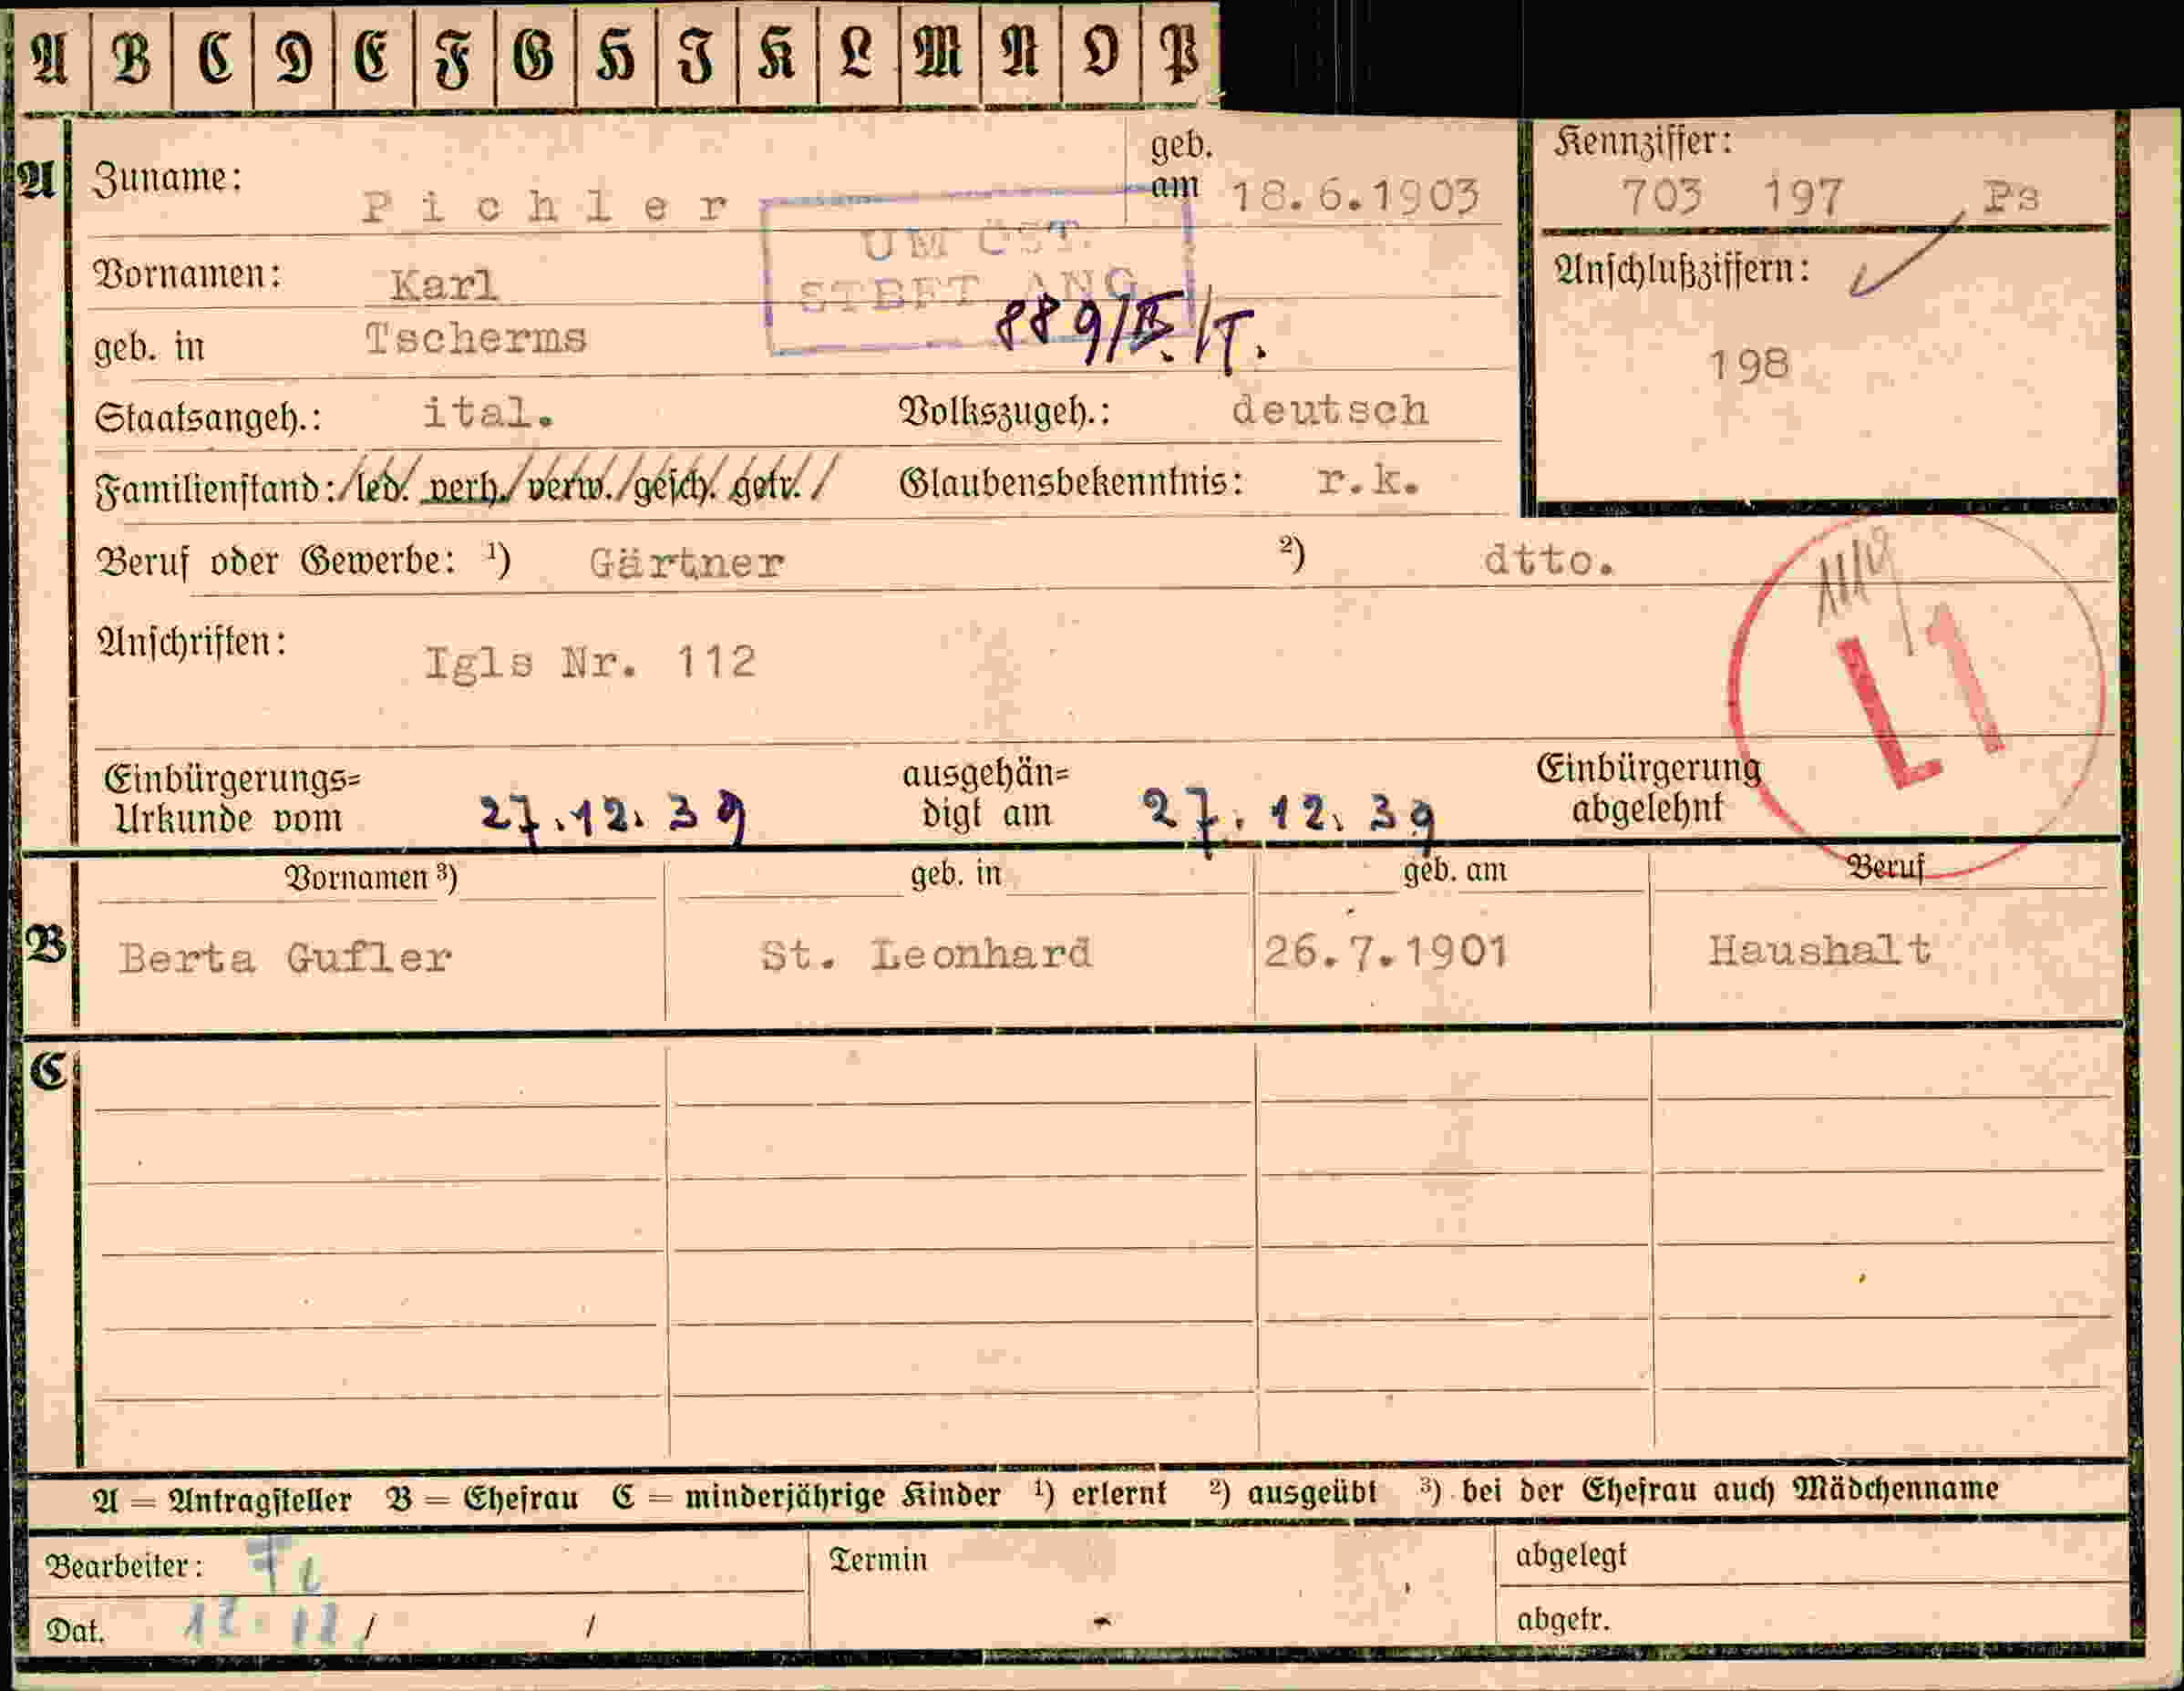 A B C D E F G H I K L M N O P
A Zuname: Pichler geb. am 18.6.1903
Kennziffer: 703 197 Ps
UM ÖST. STBFT ANG.
Vornamen: Karl
Anschlußziffern: 198
889/II./T.
geb. in Tscherms
Staatsangeh.: ital. Volkszugeh.: deutsch
Familienstand: / led. verh. / verw. / gesch. getr. / Glaubensbekenntnis: r.k.
Beruf oder Gewerbe: ¹) Gärtner ²) dtto.
Anschriften: Igls Nr. 112
L1
Einbürgerungs=
Urkunde vom 27.12.39
ausgehän=
digt am 27.12.39
Einbürgerung
abgelehnt
Vornamen ³) geb. in geb. am Beruf
B Berta Gufler St. Leonhard 26.7.1901 Haushalt
C
A = Antragsteller B = Ehefrau C = minderjährige Kinder ¹) erlernt ²) ausgeübt ³) bei der Ehefrau auch Mädchenname
Bearbeiter: Termin abgelegt
Dat. 12.12. / / abgetr.